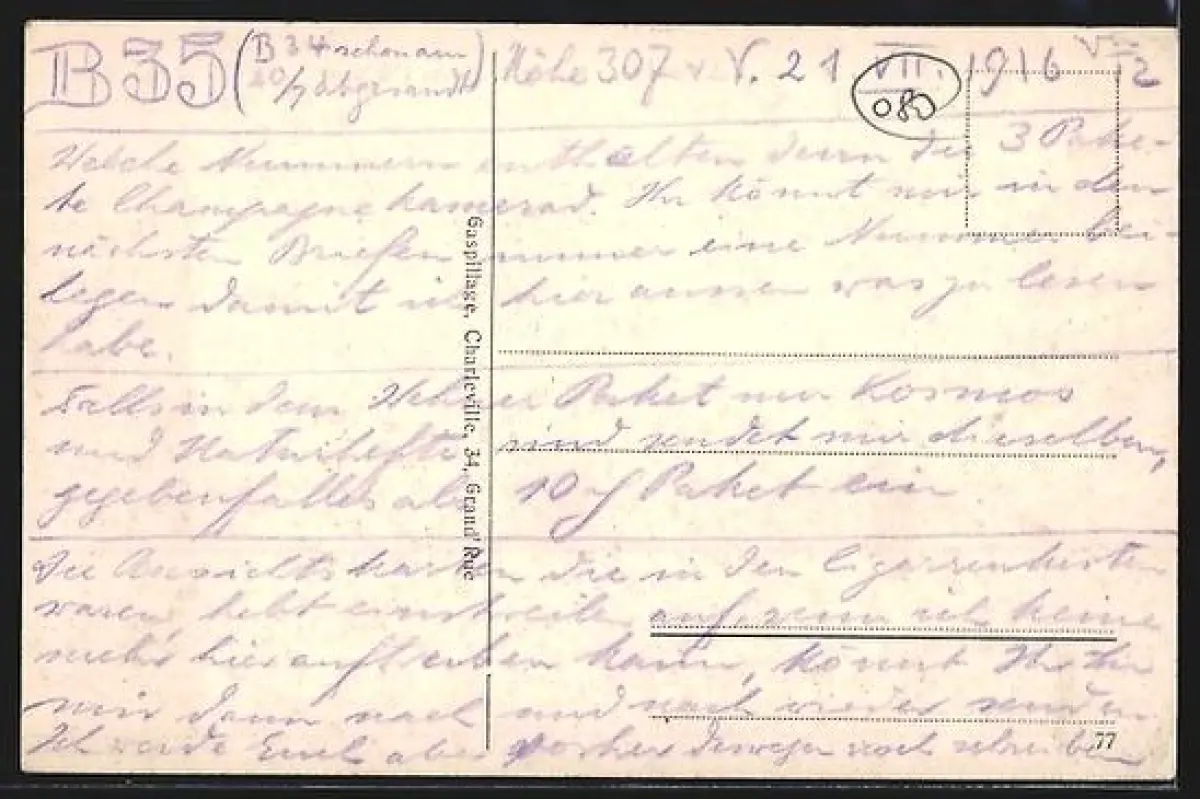 B 35 (B 34 schon am
20/7 abgesandt)
Höhe 307 v. V. 21 VII. 1916
080
Welche Nummern enthielten denn die 3 Pake-
te Champagne Kamerad. Ihr könnt mir in den
nächsten Briefen immer eine Nummer bei-
legen damit ich hier aussen was zu lesen
habe.
Falls in dem Paket nur Kosmos
und Naturhefte sind sendet mir dieselben,
gegebenfalles als 10 Paket ein
Die Ansichtskarten die in den Cigarrenkisten
waren, hebt einstweilen auf, wenn ich keine
mehr hier auftreiben kann, könnt Ihr
mir dann nach und nach wieder senden.
Ich werde Euch aber vorher deswegen noch schreiben
Gaspillage, Charleville, 34, Grand'Rue
77